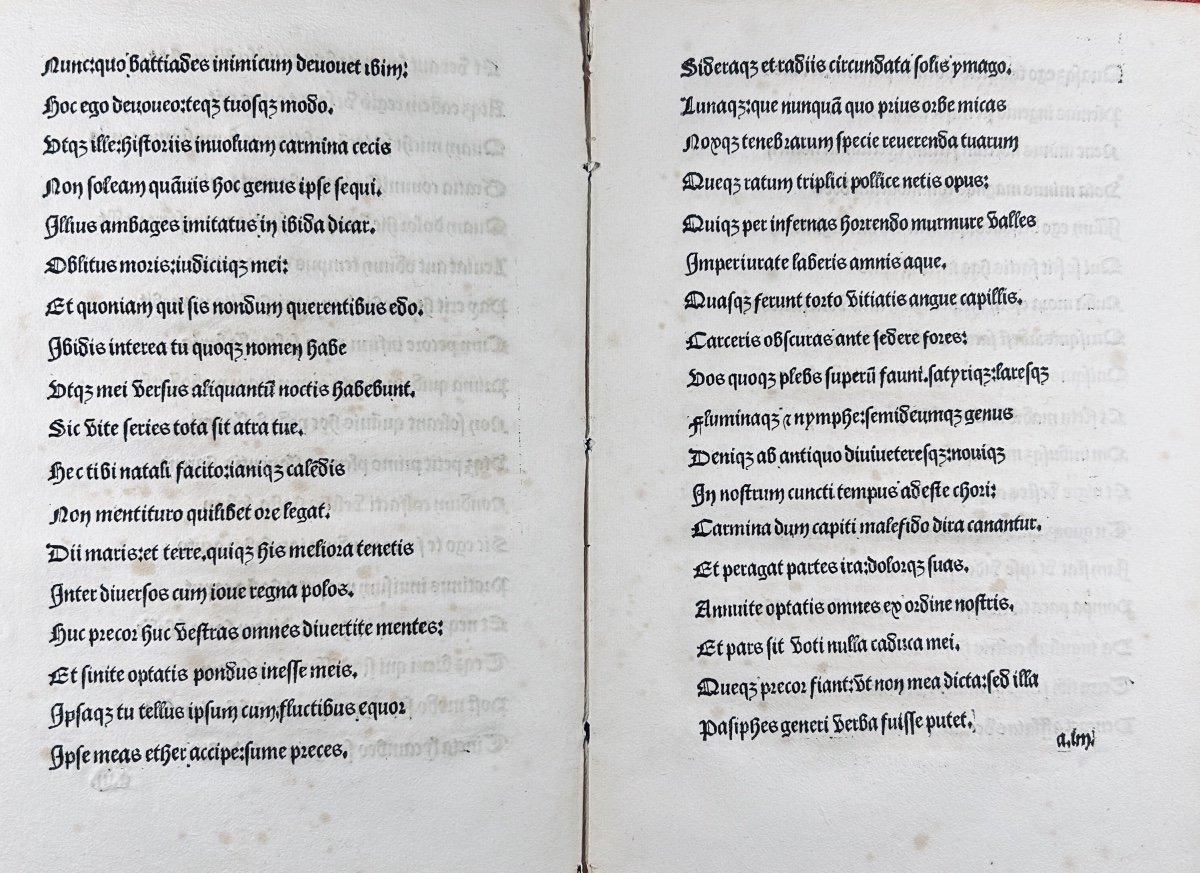 Nunc:quo battiades inimicum deuouet ibim:
Hoc ego deuoueo:teqꝫ tuosqꝫ modo.
Vtqꝫ ille:historiis inuoluam carmina cecis
Non soleam quāuis hoc genus ipse sequi.
Illius ambages imitatus in ibida dicar.
Oblitus moris:iudiciiqꝫ mei:
Et quoniam qui sis nondum querentibus edo:
Ibidis interea tu quoqꝫ nomen habe
Vtqꝫ mei versus aliquantū noctis habebunt.
Sic vite series tota sit atra tue.
Hec tibi natali facito:ianiqꝫ calēdis
Non mentituro quilibet ore legat.
Dii maris:et terre.quiqꝫ his meliora tenetis
Inter diuersos cum ioue regna polos.
Huc precor huc vestras omnes diuertite mentes:
Et sinite optatis pondus inesse meis.
Ipsaqꝫ tu tellus ipsum cum.fluctibus equor
Ipse meas ether accipe:sume preces.
Sideraqꝫ et radiis circundata solis ymago.
Lunaqꝫ:que nunquā quo prius orbe micas
Noxqꝫ tenebrarum specie reuerenda tuarum
Queqꝫ ratum triplici pollice netis opus:
Quiqꝫ per infernas horrendo murmure valles
Imperiurate laberis amnis aque.
Quasqꝫ ferunt torto vitiatis angue capillis.
Carceris obscuras ante sedere fores:
Vos quoqꝫ plebs superū fauni.satyriqꝫ:laresqꝫ
Fluminaqꝫ ⁊ nymphe:semideumqꝫ genus
Deniqꝫ ab antiquo diuiueteresqꝫ:nouiqꝫ
In nostrum cuncti tempus adeste chori:
Carmina dum capiti malefido dira canantur.
Et peragat partes ira:dolorqꝫ suas.
Annuite optatis omnes ex ordine nostris.
Et pars sit voti nulla caduca mei.
Queqꝫ precor fiant:vt non mea dicta:sed illa
Pasiphes generi verba fuisse putet.